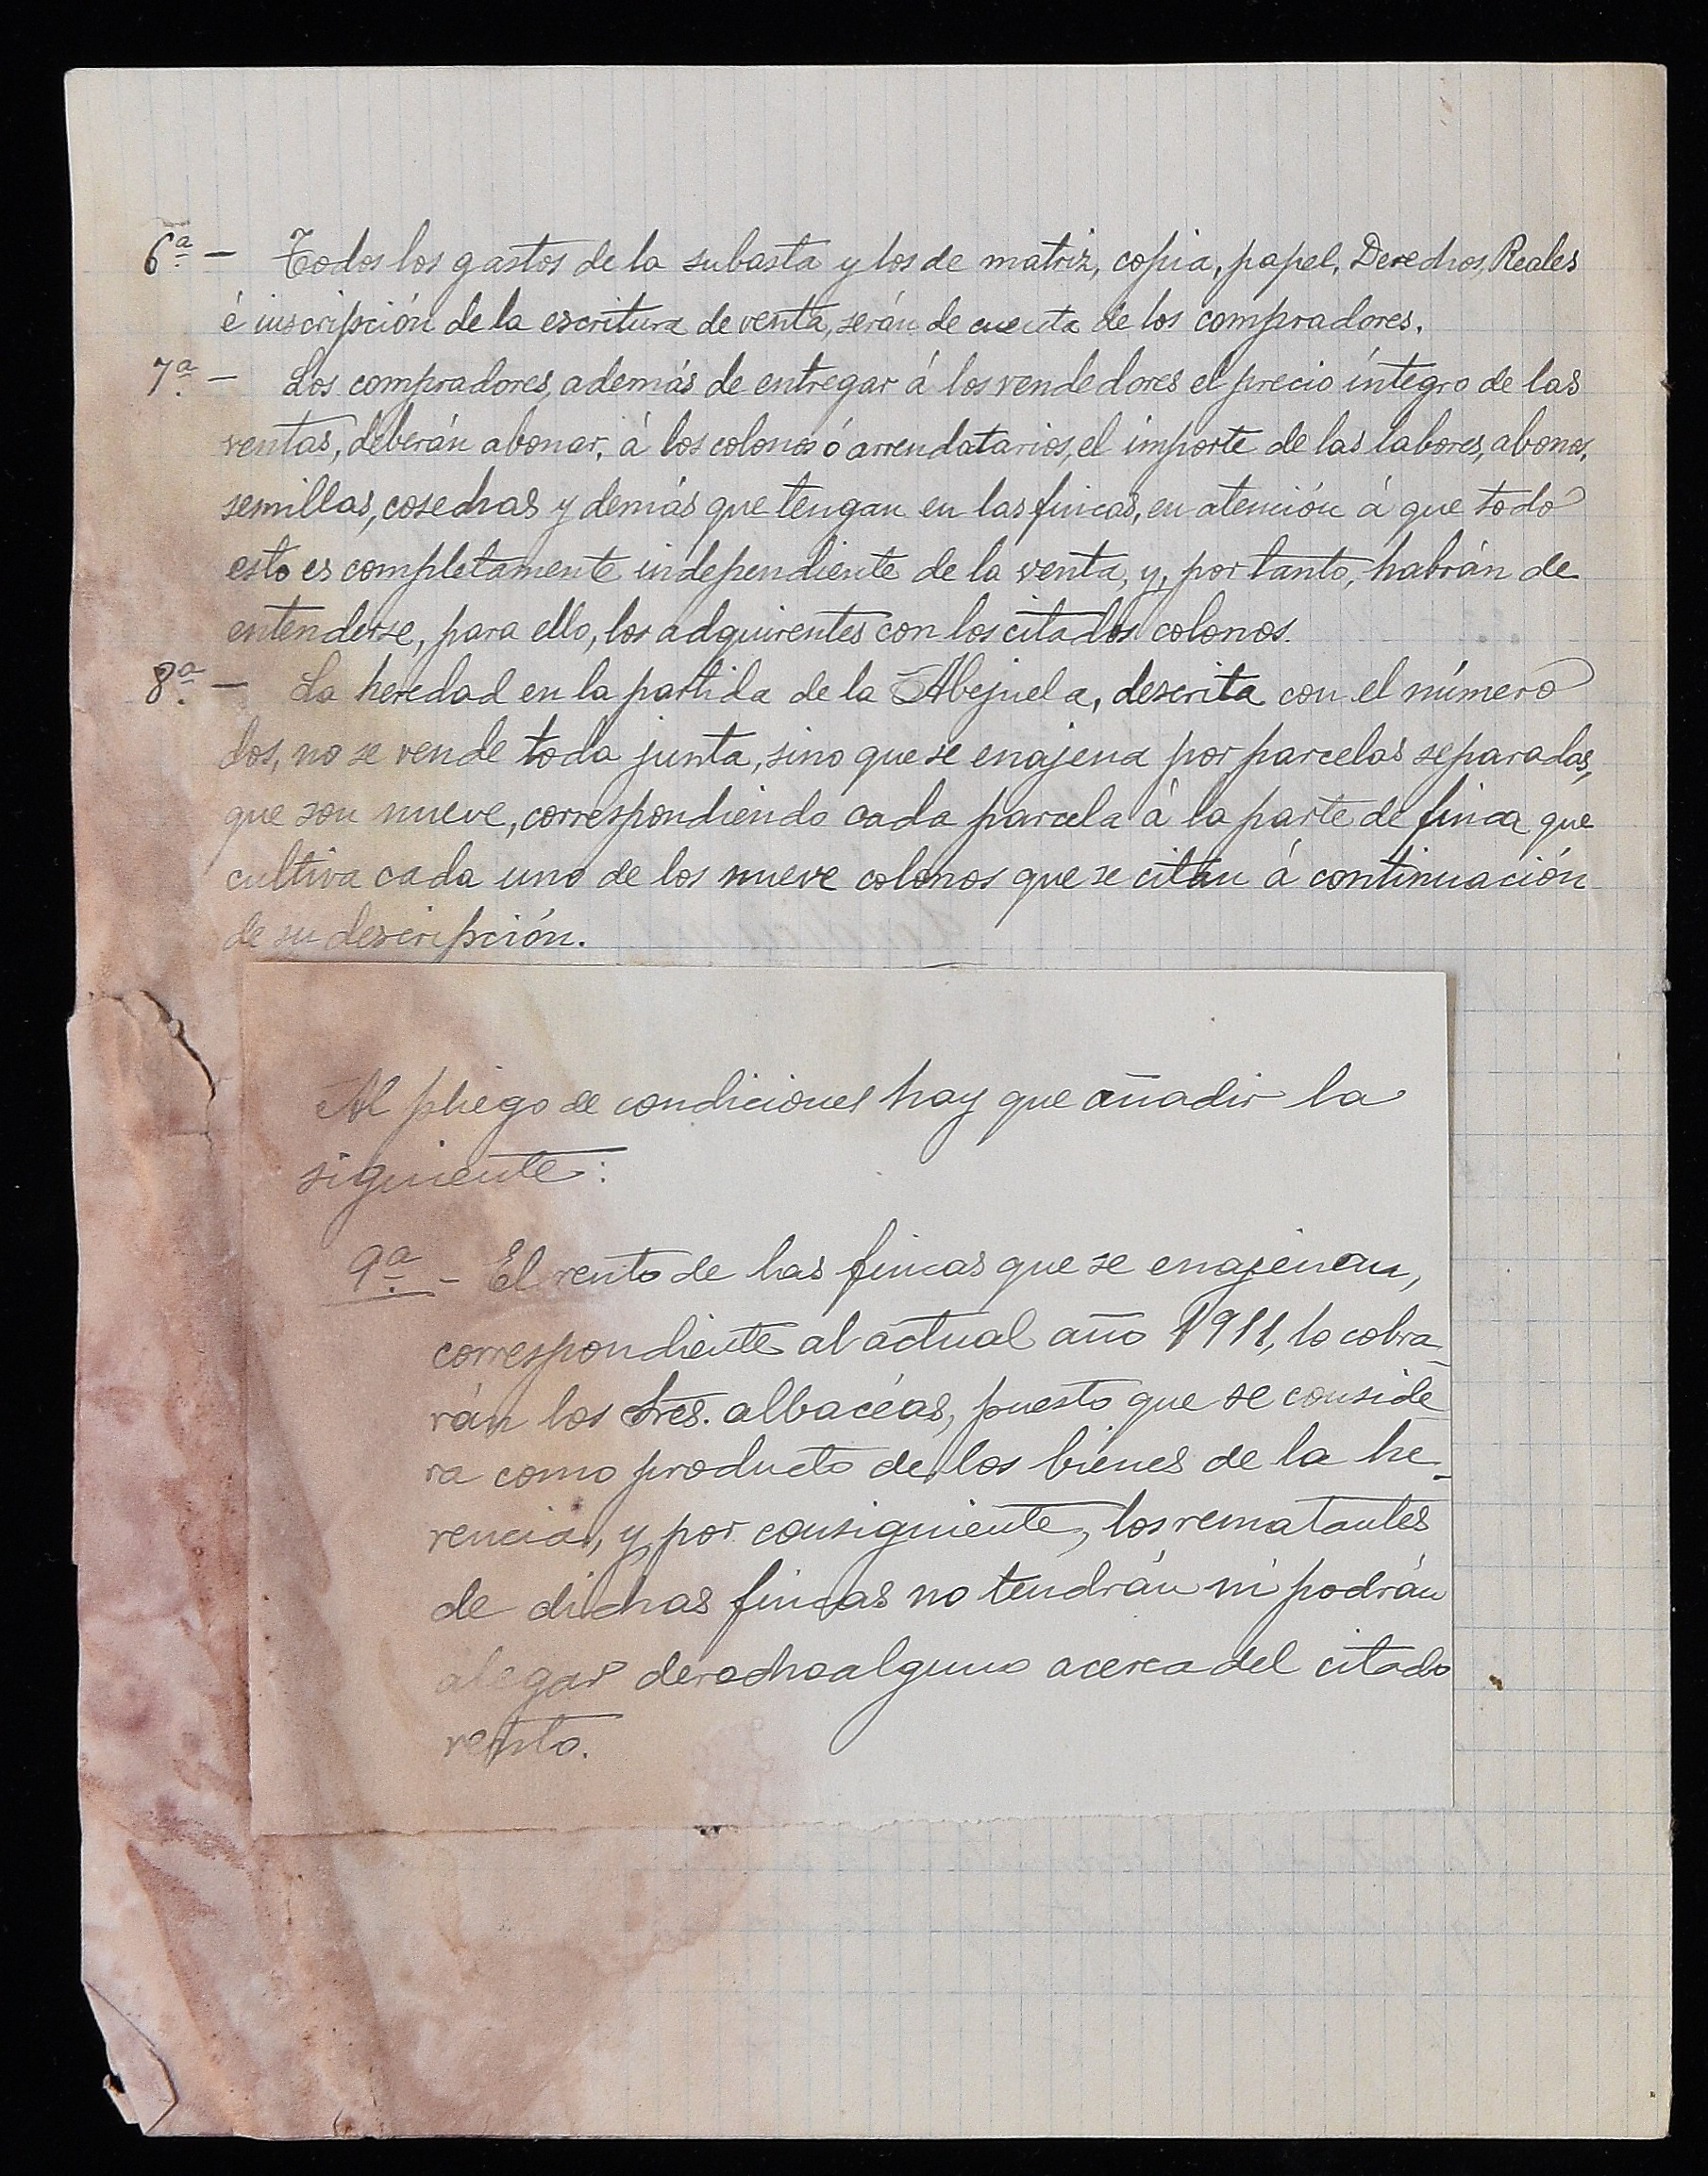 6ª — Todos los gastos de la subasta y los de matriz, copia, papel, Derechos Reales
é inscripción de la escritura de venta, serán de cuenta de los compradores.
7ª — Los compradores, además de entregar á los vendedores el precio íntegro de las
ventas, deberán abonar, á los colonos ó arrendatarios, el importe de las labores, abonos,
semillas, cosechas y demás que tengan en las fincas, en atención á que todo
esto es completamente independiente de la venta, y, por tanto, habrán de
entenderse, para ello, los adquirentes con los citados colonos.
8ª — La heredad en la partida de la Abejuela, descrita con el número
dos, no se vende toda junta, sino que se enajena por parcelas separadas,
que son nueve, correspondiendo cada parcela á la parte de finca que
cultiva cada uno de los nueve colonos que se citan á continuación
de su descripción.
Al pliego de condiciones hay que añadir la
siguiente:
9ª – El rento de las fincas que se enajenan,
correspondiente al actual año 1911, lo cobra-
rán los Sres. albacéas, puesto que se conside-
ra como producto de los bienes de la he-
rencia, y por consiguiente, los rematantes
de dichas fincas no tendrán ni podrán
alegar derecho alguno acerca del citado
rento.